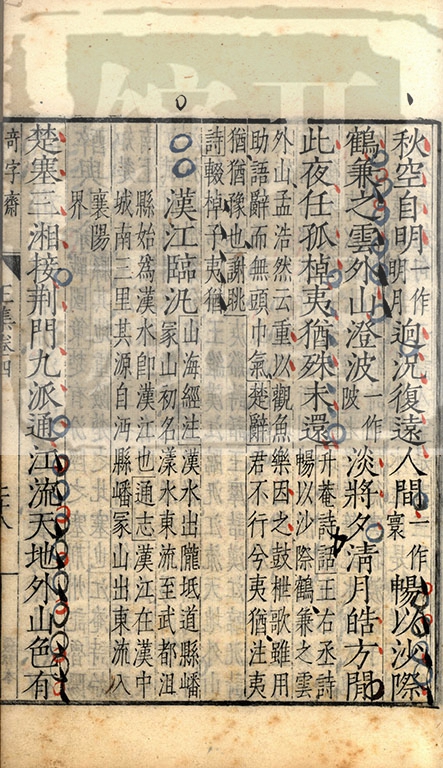 秋空自明一作明月迥況復遠人間一作寰暢以沙際
鶴兼之雲外山澄波一作陂淡將夕清月皓方閒
此夜任孤棹夷猶殊未還升菴詩話王右丞詩
暢以沙際鶴兼之雲
外山孟浩然云重以觀魚樂因之鼓枻歌雖用
助語辭而無頭巾氣楚辭君不行兮夷猶注夷
猶猶豫也謝朓
詩輟棹子夷猶
漢江臨汎山海經注漢水出隴坻道縣嶓
冢山初名漾水東流至武都沮
縣始爲漢水卽漢江也通志漢江在漢中
城南三里其源自沔縣嶓冢山出東流入
襄陽
界
楚塞三湘接荆門九派通江流天地外山色有
奇字齋